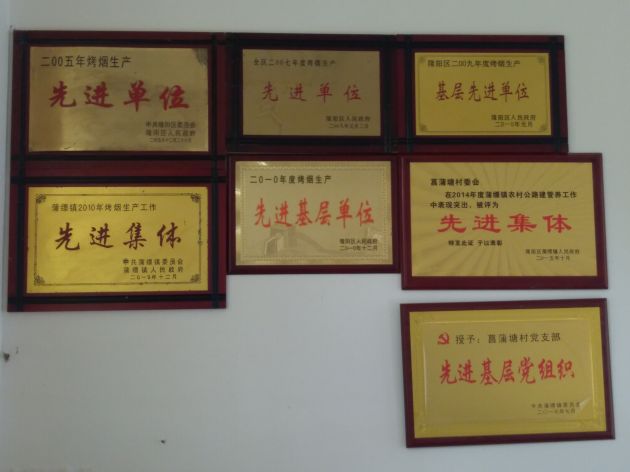 二00五年烤烟生产
先进单位
中共隆阳区委员会
隆阳区人民政府
全区二00七年度烤烟生产
先进单位
隆阳区人民政府
隆阳区二00九年度烤烟生产
基层先进单位
隆阳区人民政府
二0一0年元月
蒲缥镇2010年烤烟生产工作
先进集体
中共蒲缥镇委员会
蒲缥镇人民政府
二0一0年十二月
二0一0年度烤烟生产
先进基层单位
隆阳区人民政府
二0一0年十二月
菖蒲塘村委会
在2014年度蒲缥镇农村公路建管养工作
中表现突出，被评为
先进集体
特发此证 予以表彰
隆阳区蒲缥镇人民政府
二0一五年十月
授予：菖蒲塘村党支部
先进基层党组织
中共蒲缥镇委员会
二0一六年七月